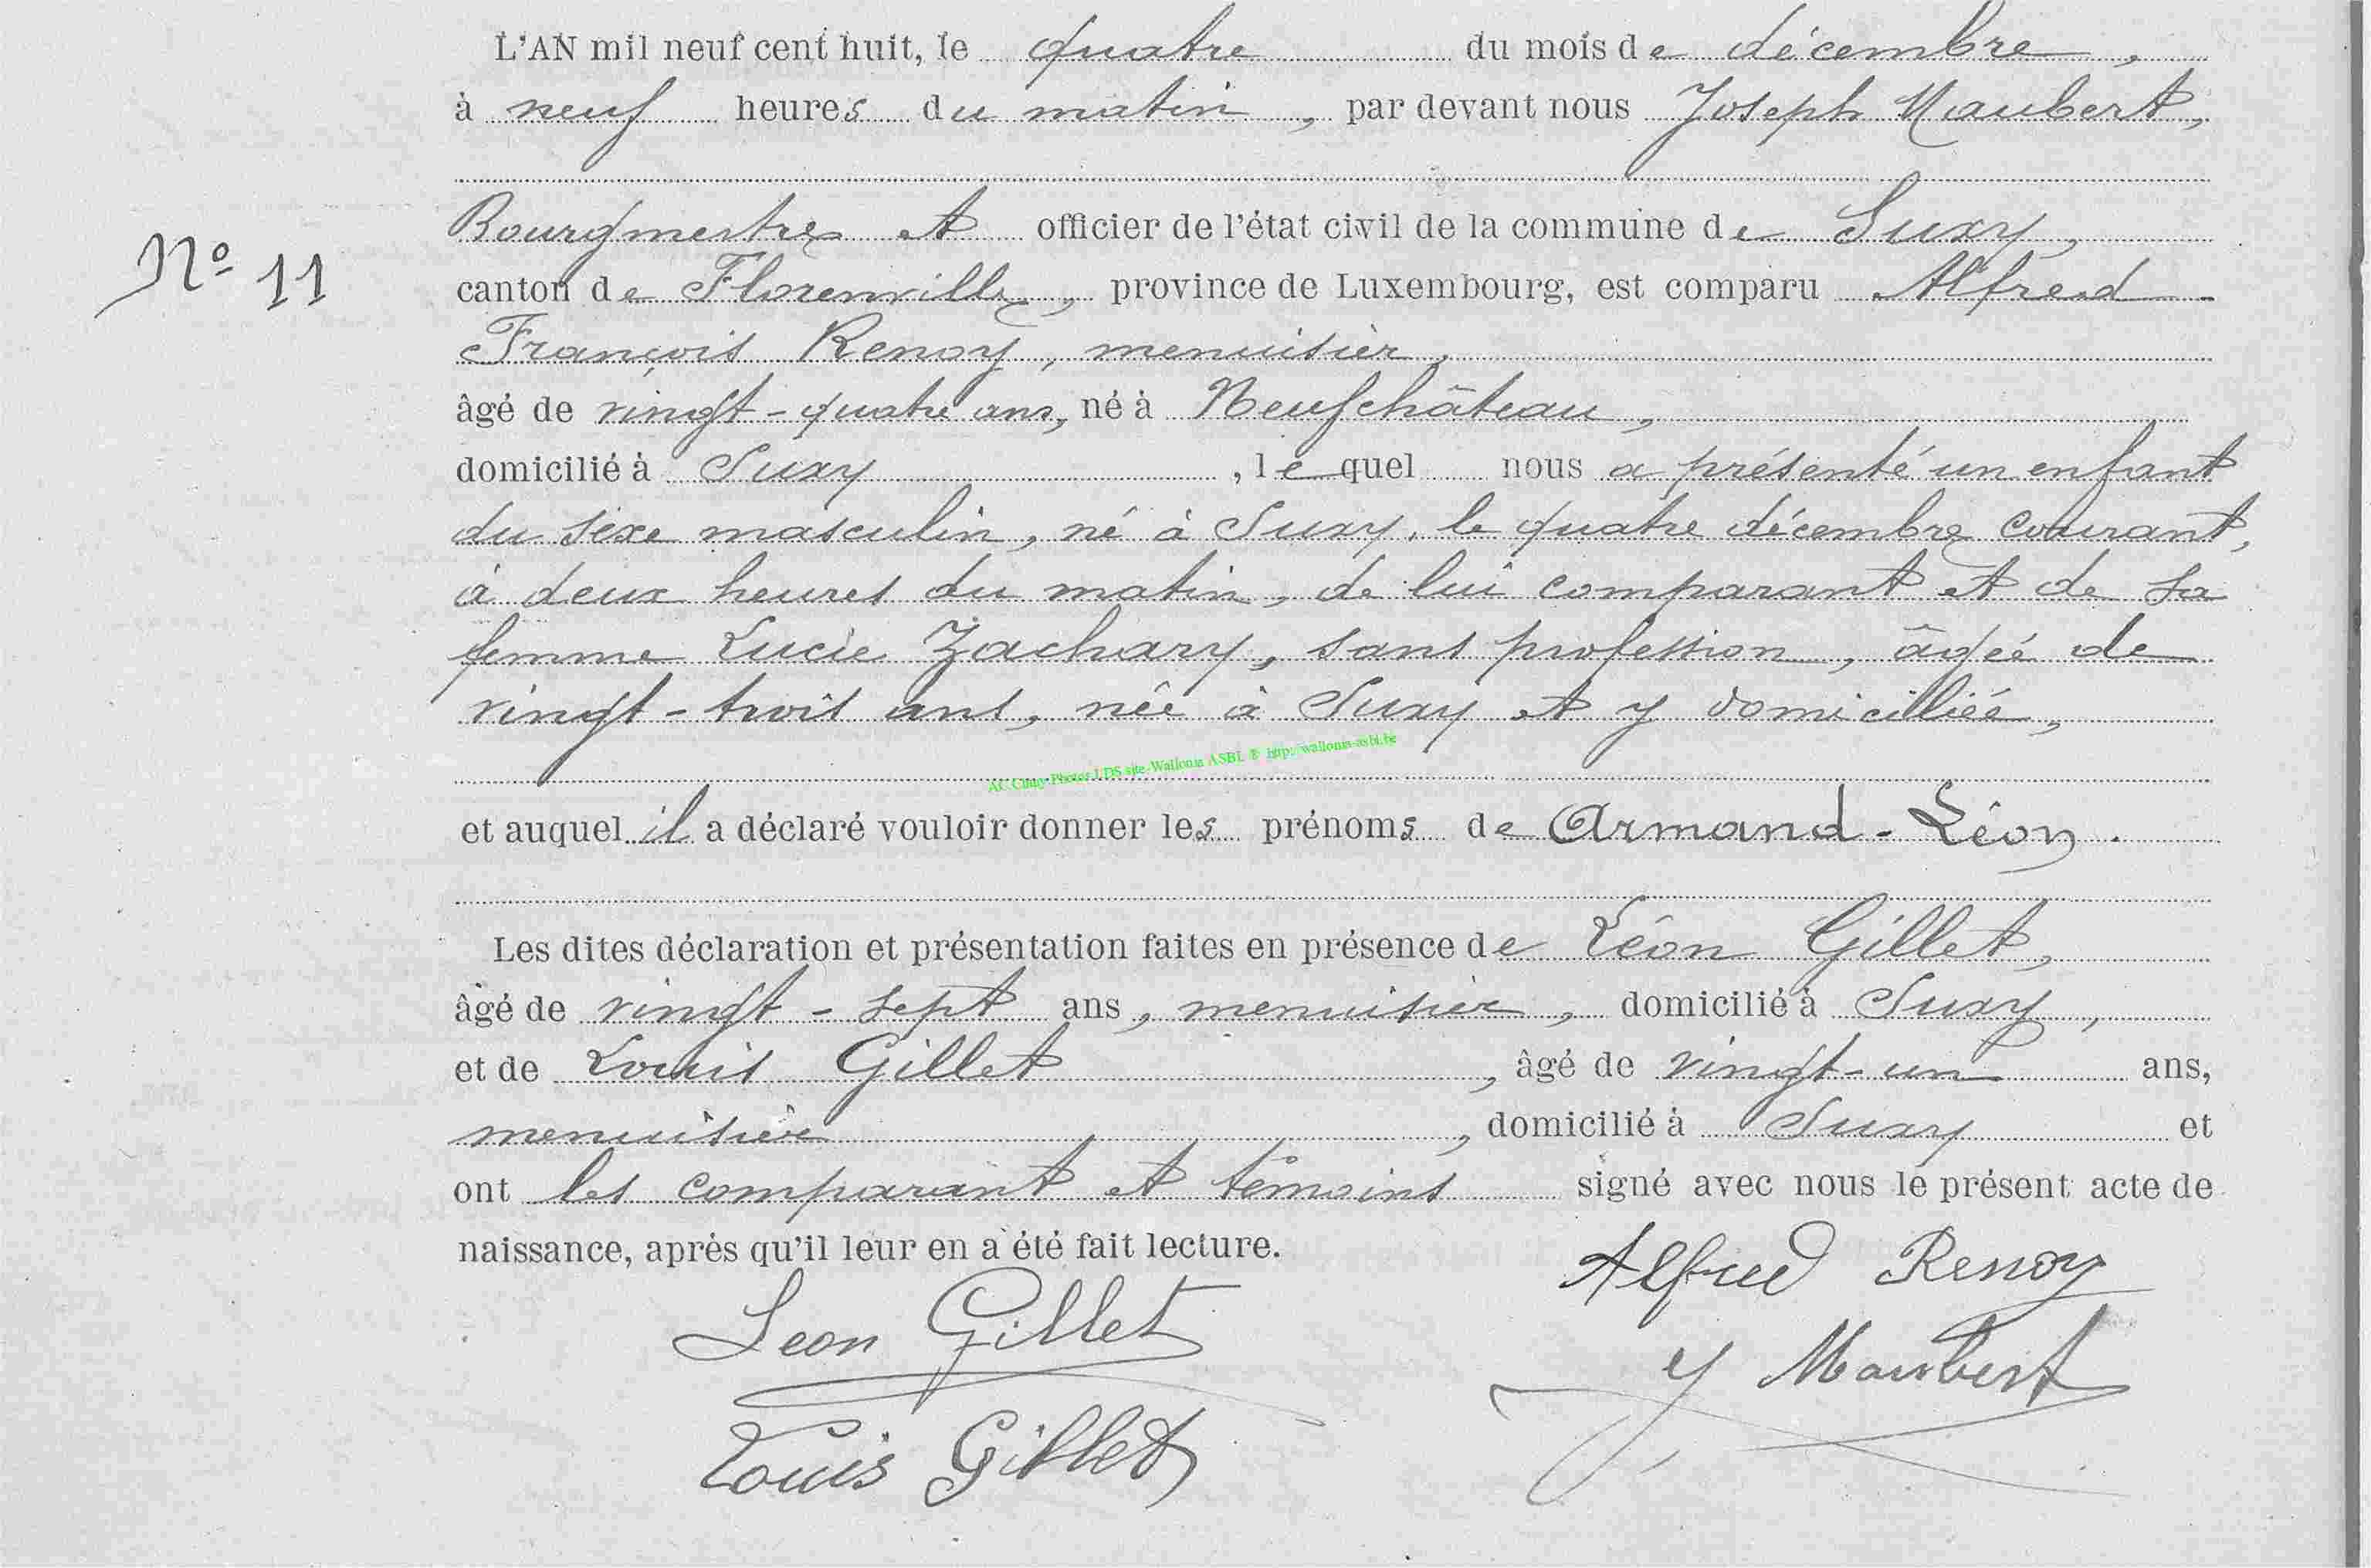 L'AN mil neuf cent huit, le quatre du mois de décembre,
à neuf heures du matin, par devant nous Joseph Maubert,
Bourgmestre et officier de l'état civil de la commune de Suxy,
Nº 11
canton de Florenville, province de Luxembourg, est comparu Alfred-
François Renoy, menuisier,
âgé de vingt-quatre ans, né à Neufchâteau,
domicilié à Suxy, lequel nous a présenté un enfant
du sexe masculin, né à Suxy, le quatre décembre courant,
à deux heures du matin, de lui comparant et de sa
femme Lucie Zachary, sans profession, âgée de
vingt-trois ans, née à Suxy et y domicilliée,
ASBL ® http://wallonia-asbl.be
et auquel il a déclaré vouloir donner les prénoms de Armand-Léon.
Les dites déclaration et présentation faites en présence de Léon Gillet,
âgé de vingt-sept ans, menuisier, domicilié à Suxy,
et de Louis Gillet, âgé de vingt-un ans,
menuisier, domicilié à Suxy et
ont les comparant et témoins signé avec nous le présent acte de
naissance, après qu'il leur en a été fait lecture.
Alfred Renoy
Leon Gillet
J Maubert
Louis Gillet